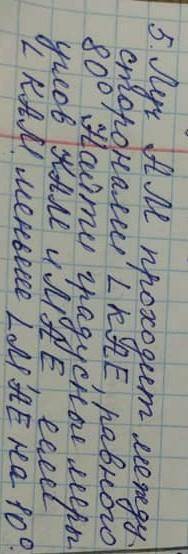 5. Луч АМ проходит между
сторонами ∠ КАЕ, равного
80° Найти градусные меры
углов КАМ и МАЕ если
∠ КАМ меньше ∠МАЕ на 10°.